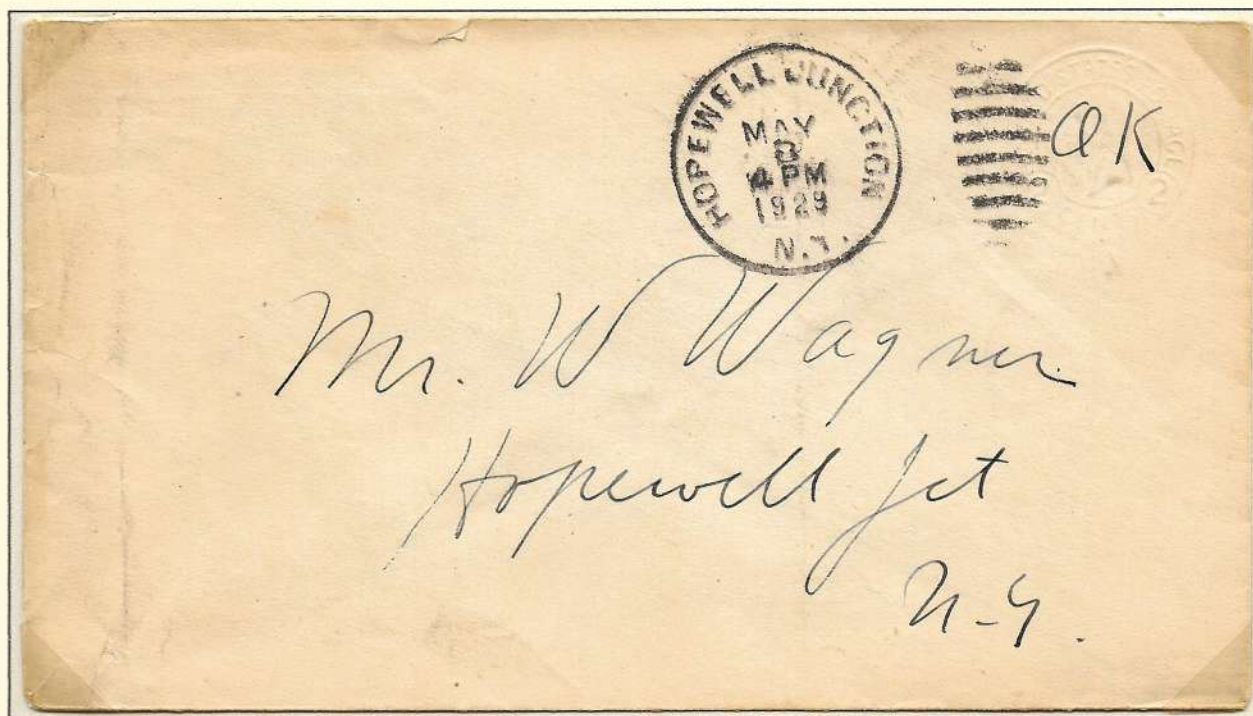 HOPEWELL JUNCTION
MAY
8
4 PM
1929
N.Y.
OK
2
Mr. W Wagner
Hopewell Jct
N-Y.